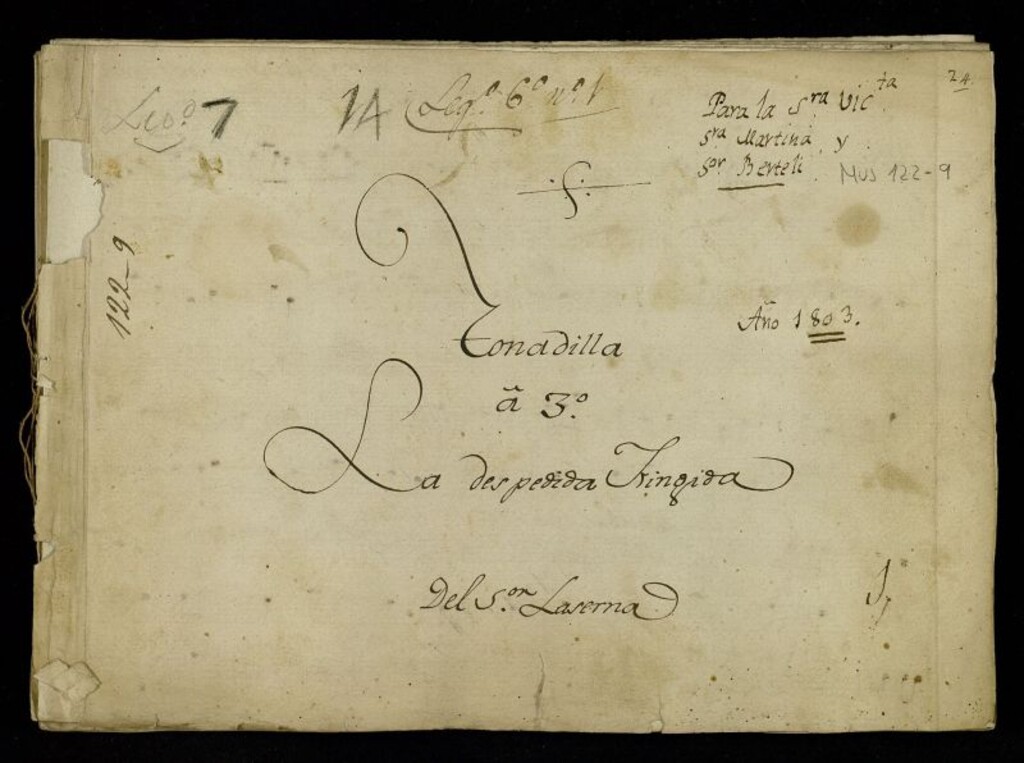 Leg.º 7
14
Leg.º 6º nº 1
24
Para la S.ra Vic.ta
S.ra Martina y
S.or Berteli
MUS 122-9
122-9
Año 1803.
Tonadilla
â 3.º
La despedida Fingida
Del S.or Laserna